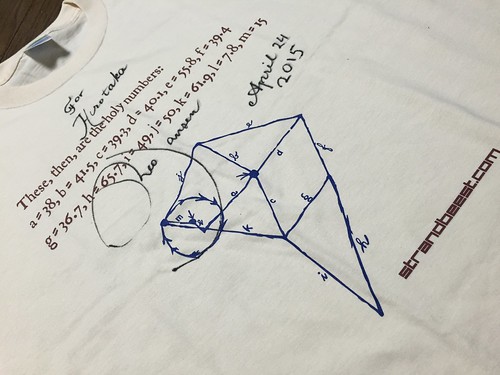 For
Hirotaka
These, then, are the holy numbers:
a = 38, b = 41.5, c = 39.3, d = 40.1, e = 55.8, f = 39.4
g = 36.7, h = 65.7, i = 49, j = 50, k = 61.9, l = 7.8, m = 15
Theo Jansen
April 24
2015
e
f
j
b
d
a
c
g
m
k
h
i
strandbeest.com